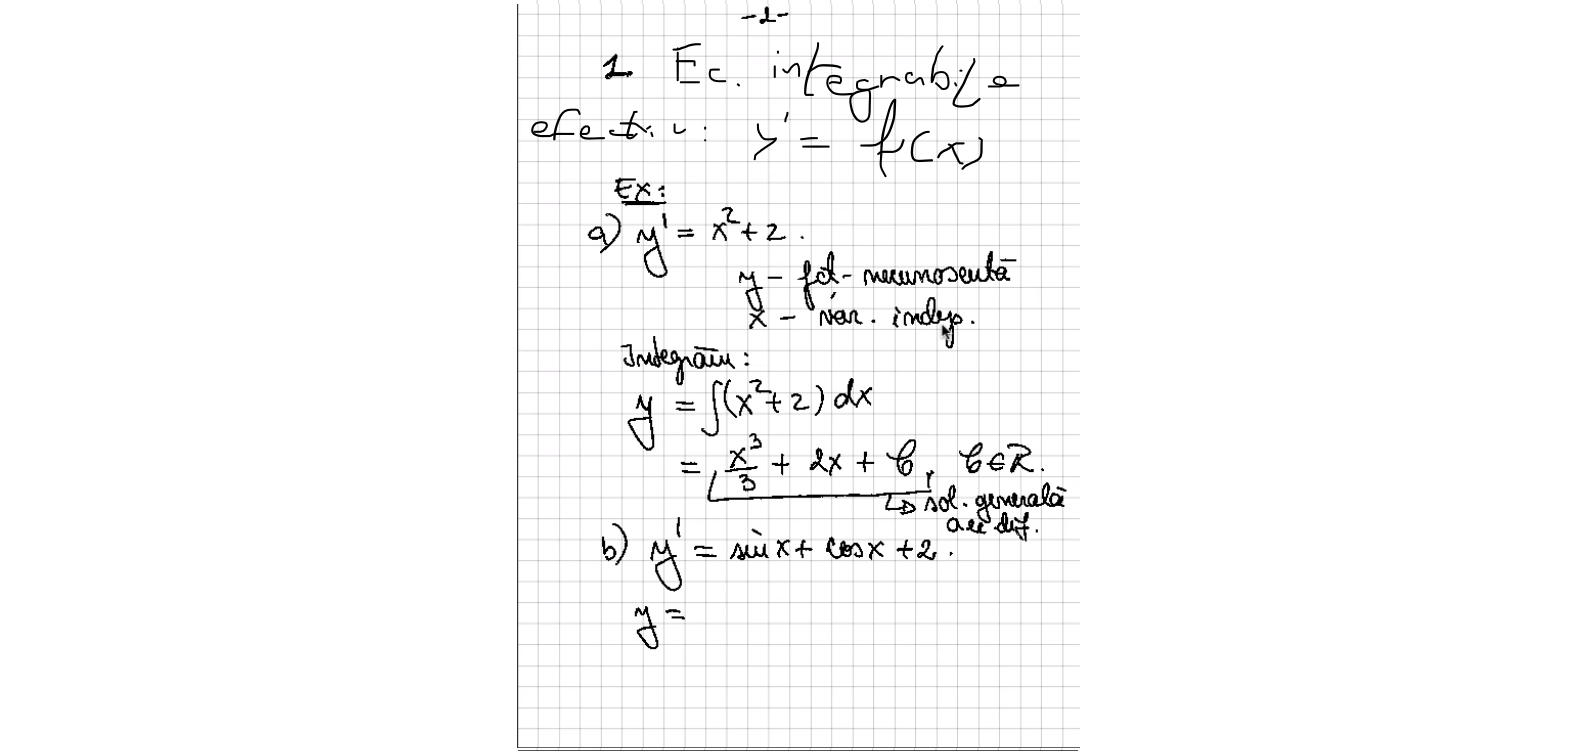 -1-
1 Ec. integrabile
efectiv: y' = f(x)
Ex:
a) y' = x² + 2.
y - fct - necunoscută
x - var. indep.
Integrăm:
y = ∫(x² + 2) dx
= x³/3 + 2x + C, C ∈ R.
↳ sol. generală
a ec dif.
b) y' = sin x + cos x + 2.
y =